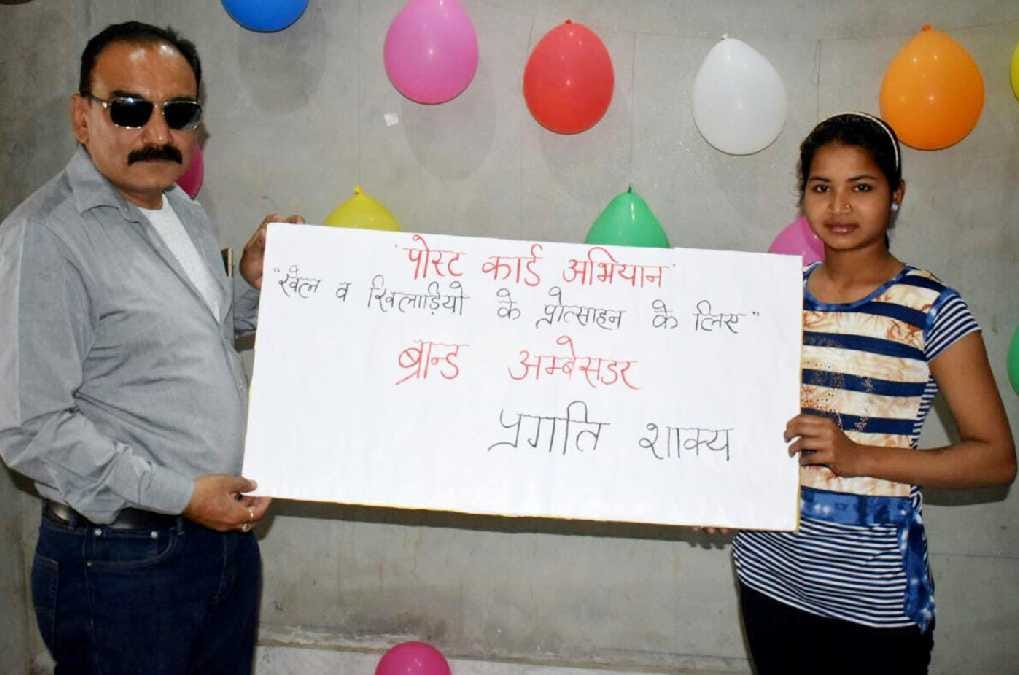 'पोस्ट कार्ड अभियान'
"खेल व खिलाड़ियो के प्रोत्साहन के लिए"
ब्रान्ड अम्बेसडर
प्रगति शाक्य